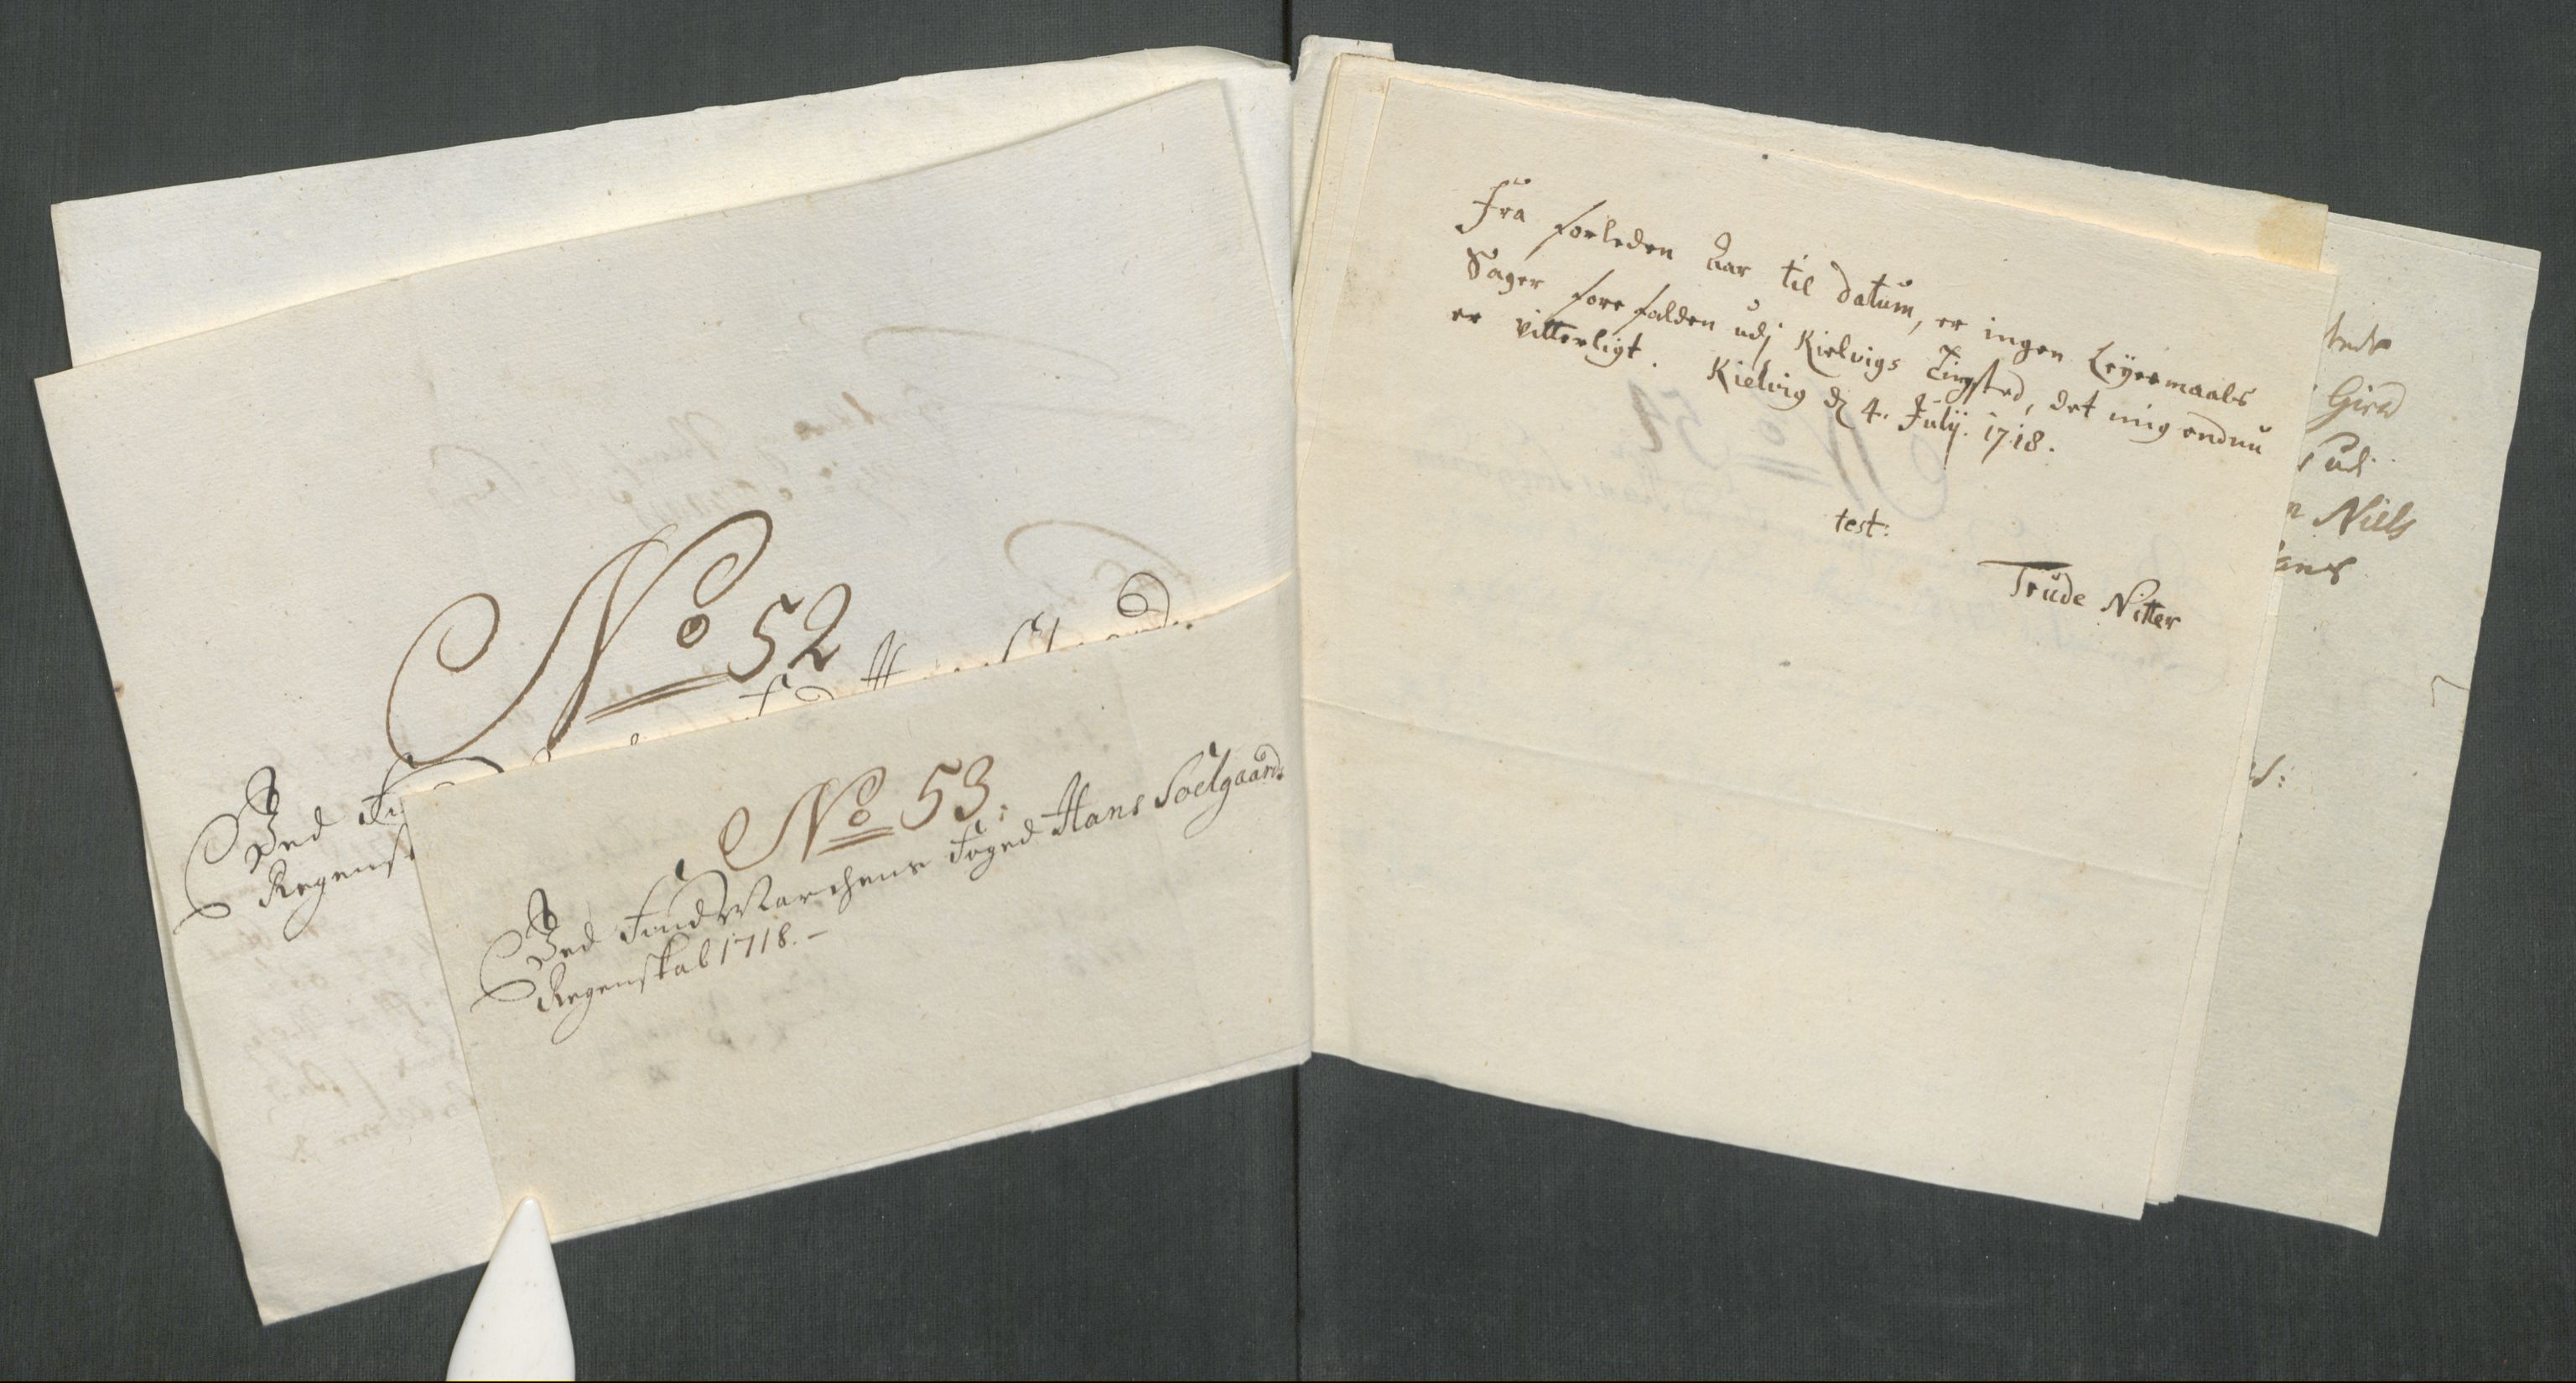 No 52
Ved
Regensk
No 53:
Ved Findmarchens Foged Hans Soelgaards
Regenskab 1718. -
Fra forleden Aar til datum, er ingen Leyermaals
Sager fore falden udj Kielvigs Tingsted, det mig endnu
er vitterligt. Kielvig d 4. Julij. 1718.
test:
Trude Nitter
Gird
udj
Niels